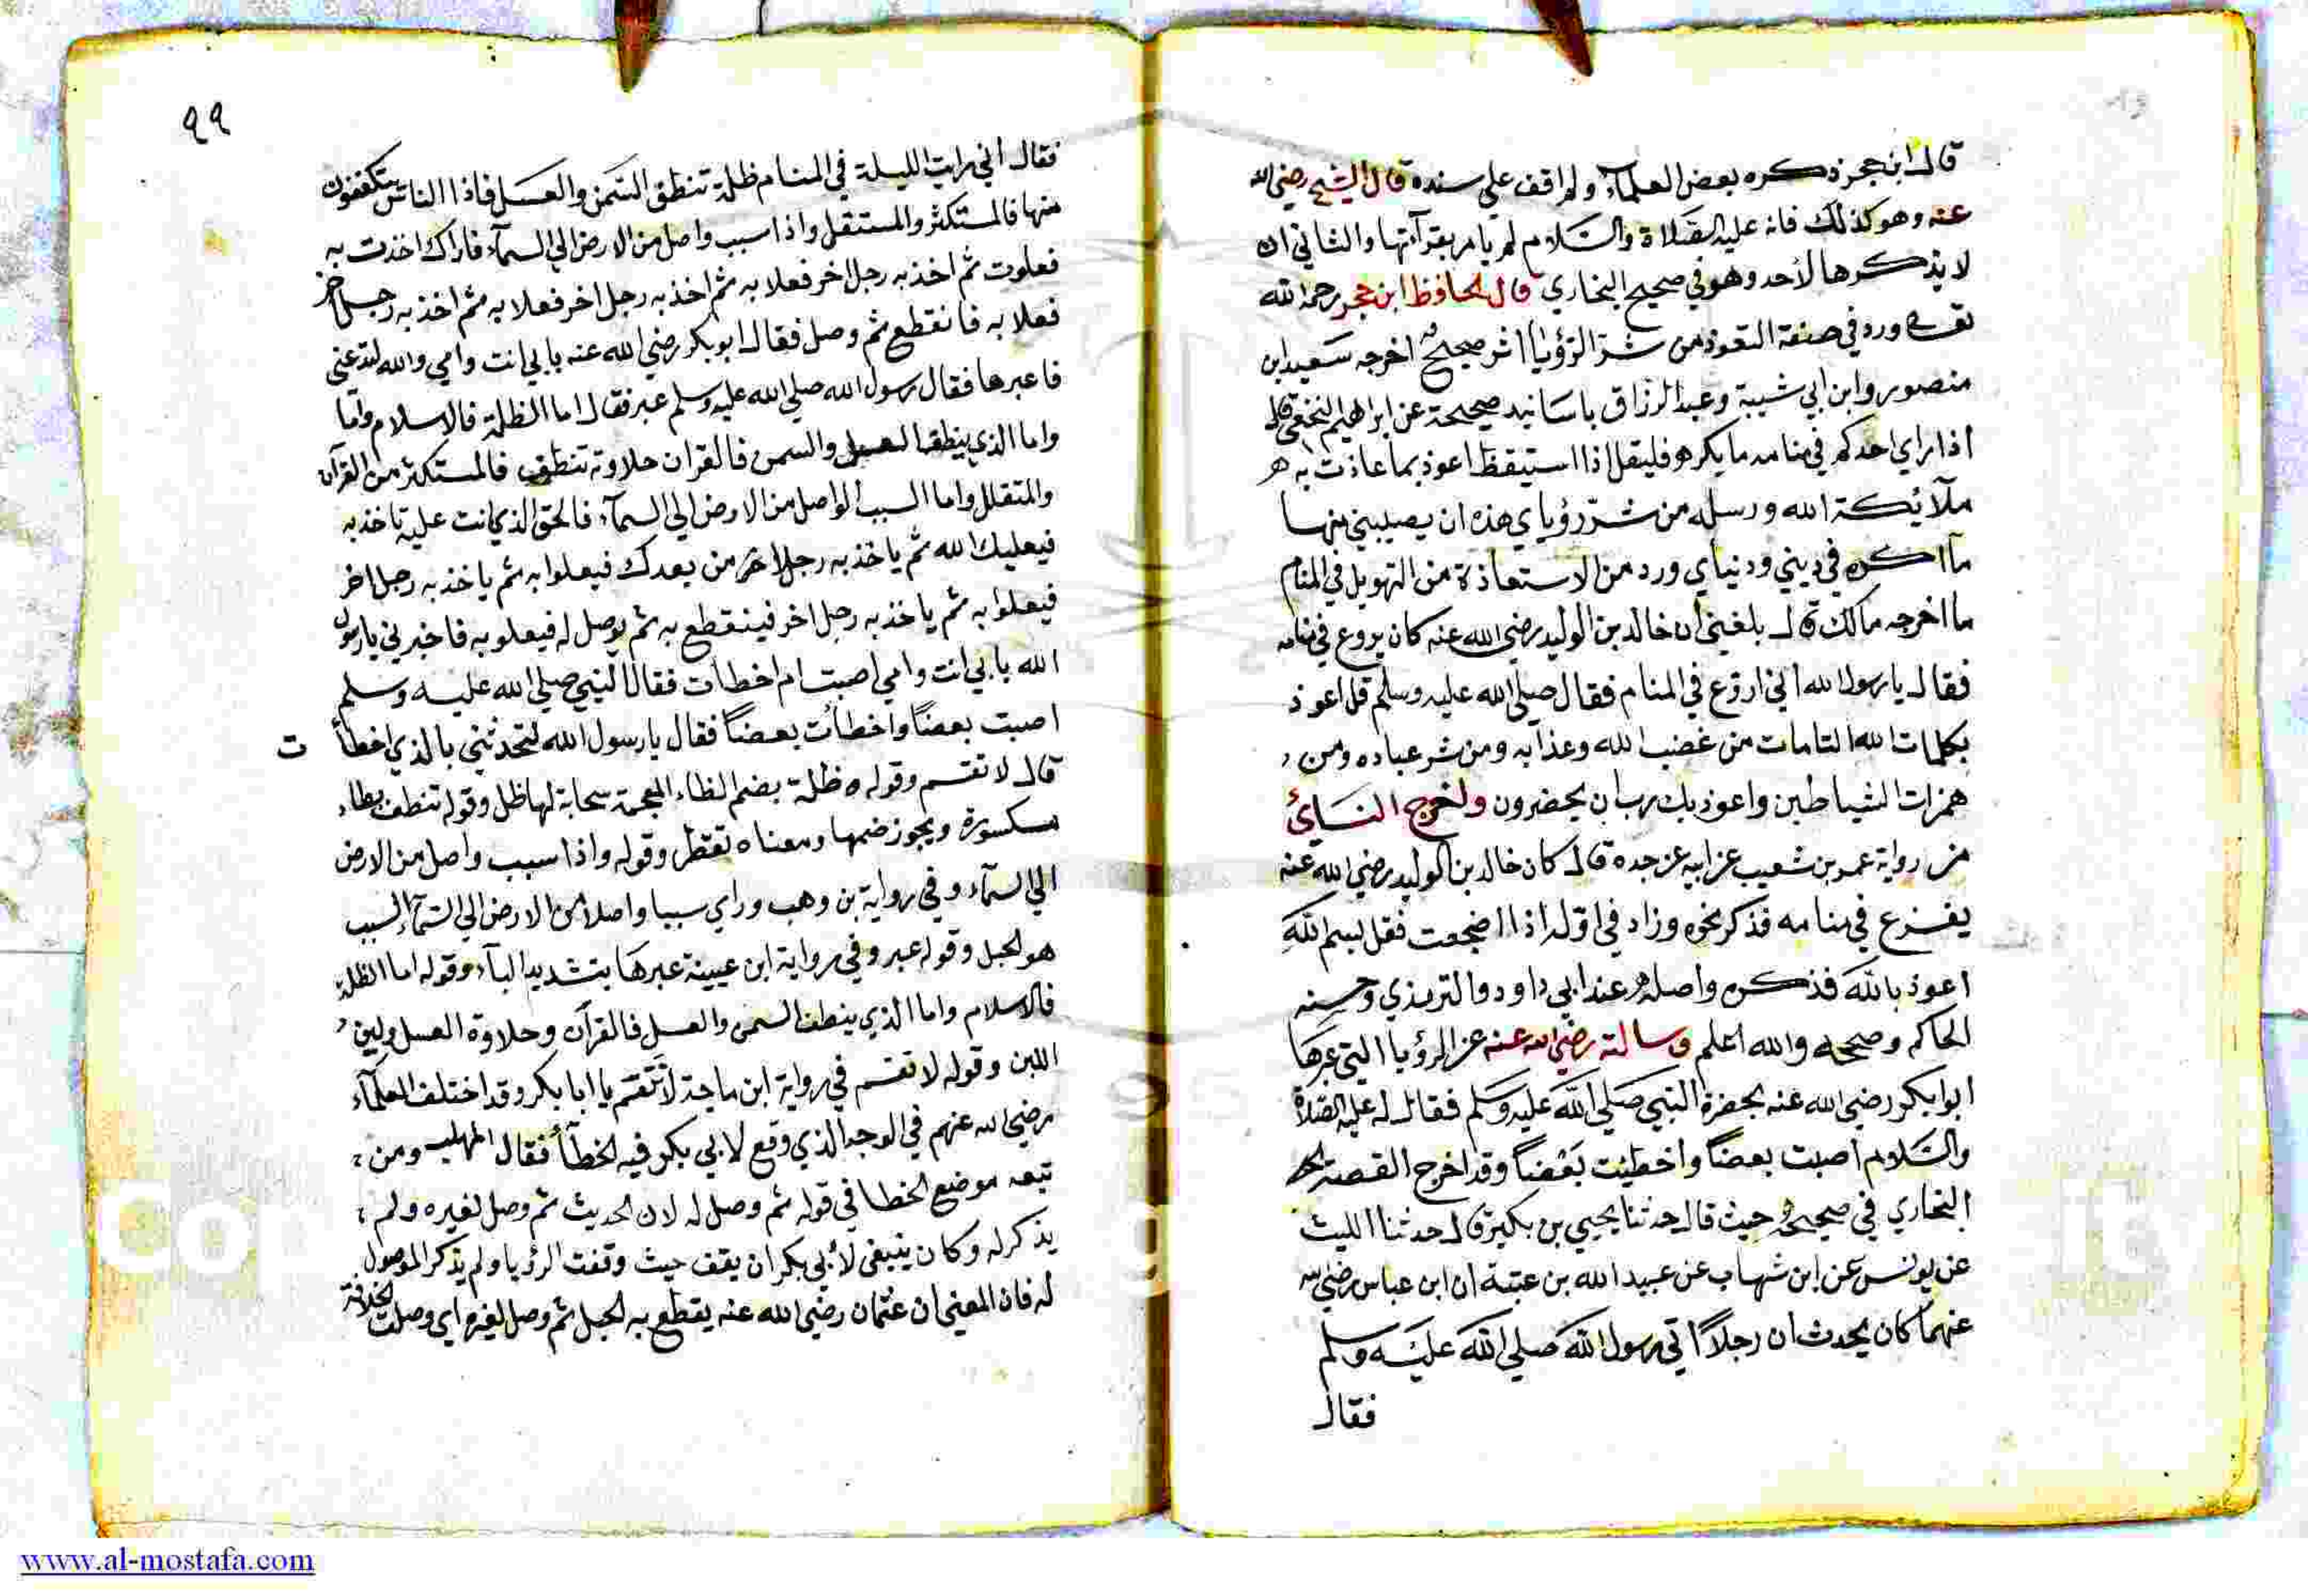 قال ابن حجر ذكره بعض العلماء ولم اقف علي سنده قال الشيخ رضي الله
عنه وهو كذلك فانه عليه الصلاة والسلام لم يامر بقرآءتها والثاني ان
لا يذكرها لأحد وهو في صحيح البخاري قال الحافظ ابن حجر رحمه الله
ورد في صفة التعوذ من شر الرؤيا اثر صحيح اخرجه سعيد ابن
منصور وابن ابي شيبة وعبد الرزاق باسانيد صحيحة عن ابراهيم النخعي قال
اذا راي احدكم في منامه ما يكره فليقل اذا استيقظ اعوذ بما عاذت به
ملآئكة الله ورسله من شر رؤياي هذه ان يصيبني منها
ما اكره في ديني ودنياي ورد من الاستعاذة من التهويل في المنام
ما اخرجه مالك قال بلغني ان خالد بن الوليد رضي الله عنه كان يروع في منامه
فقال يا رسول الله اني اروع في المنام فقال صلي الله عليه وسلم قل اعوذ
بكلمات الله التامات من غضب الله وعذابه ومن شر عباده ومن
همزات الشياطين واعوذ بك رب ان يحضرون واخرج النسائي
من رواية عمرو بن شعيب عن ابيه عن جده قال كان خالد بن الوليد رضي الله عنه
يفزع في منامه فذكر نحوه وزاد في اوله اذا اضجعت فقل بسم الله
اعوذ بالله فذكره واصله عند ابي داود والترمذي وحسنه
الحاكم وصححه والله اعلم وسالته رضي الله عنه عن الرؤيا التي عبرها
ابو ابكر رضي الله عنه بحضرة النبي صلي الله عليه وسلم فقال له عليه الصلاة
والسلام اصبت بعضاً واخطئت بعضاً وقد اخرج القصة
البخاري في صحيحه حيث قال حدثنا يحيي بن بكير قال حدثنا الليث
عن يونس عن ابن شهاب عن عبيد الله بن عتبة ان ابن عباس رضي الله
عنهما كان يحدث ان رجلاً اتي رسول الله صلي الله عليه وسلم
فقال
٩٩
فقال اني رايت الليلة في المنام ظلة تنطق السمن والعسل فاذا الناس يتكففون
منها فالمستكثر والمستقل واذا سبب واصل من الارض الي السمآء فاراك اخذت به
فعلوت ثم اخذ به رجل اخر فعلا به ثم اخذ به رجل اخر فعلا به ثم اخذ به رجل اخر
فعلا به فانقطع ثم وصل فقال ابو بكر رضي الله عنه بابي انت وامي والله لتدعني
فاعبرها فقال رسول الله صلي الله عليه وسلم عبر فقال اما الظلة فالاسلام واما
واما الذي ينطف العسل والسمن فالقران حلاوته تنطف فالمستكثر من القرآن
والمتقلل واما السبب الواصل من الارض الي السمآء فالحق الذي انت عليه تاخذ به
فيعليك الله ثم ياخذ به رجل اخر من بعدك فيعلوا به ثم ياخذ به رجل اخر
فيعلوا به ثم ياخذ به رجل اخر فينقطع به ثم يوصل له فيعلو به فاخبرني يا رسول
الله بابي انت وامي اصبت ام اخطات فقال النبي صلي الله عليه وسلم
اصبت بعضاً واخطأت بعضاً فقال يا رسول الله لتحدثني بالذي اخطأ ت
قال لا تقسم وقوله ظلة بضم الظاء المعجمة سحابة لها ظل وقوله تنطف بطاء
مسكسورة ويجوز ضمها ومعناه تقطر وقوله واذا سبب واصل من الارض
الي السمآء وفي رواية بن وهب وراي سببا واصلا من الارض الي السمآء السبب
هو الحبل وقوله عبر وفي رواية ابن عيينة عبرها بتشديد البآء وقوله اما الظلة
فالاسلام واما الذي ينطف السمن والعسل فالقرآن وحلاوة العسل ولين
اللبن وقوله لا تقسم في رواية ابن ماجة لا تقسم يا ابا بكر وقد اختلف العلمآء
رضي الله عنهم في الوجه الذي وقع لابي بكر فيه الخطأ فقال المهلب ومن
تبعه موضع الخطا في قوله ثم وصل له لان الحديث ثم وصل لغيره ولم
يذكر له وكان ينبغي لأبي بكر ان يقف حيث وقفت الرؤيا ولم يذكر الموصول
له فان المعني ان عثمان رضي الله عنه يقطع به الحبل ثم وصل لغيره اي وصلت الخلافة
www.al-mostafa.com